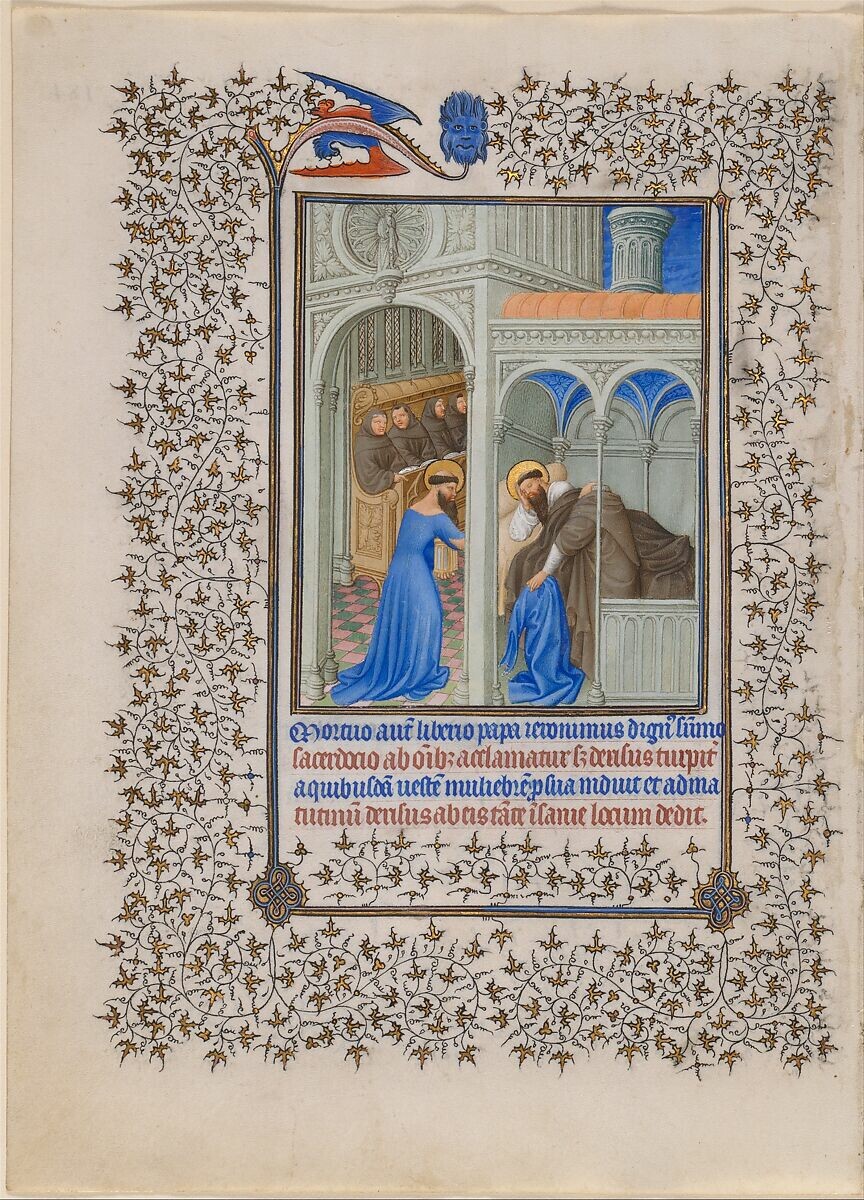 Mortuo aut̄ liberio papa ieronimus dign⁹ sūmo
sacerdocio ab oīb; acclamatur s; derisus turpit̄
a quibusdā uestē muliebrē p sua induit et ad ma
tutinū derisus ab eis tāte īsanie locum dedit.